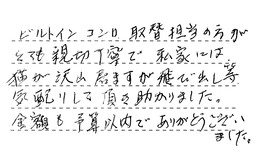 ビルトインコンロ取替担当の方が
とても親切丁寧で私家には
猫が沢山居ますが飛び出し等
気配りして頂き助かりました。
金額も予算以内でありがとうござい
ました。